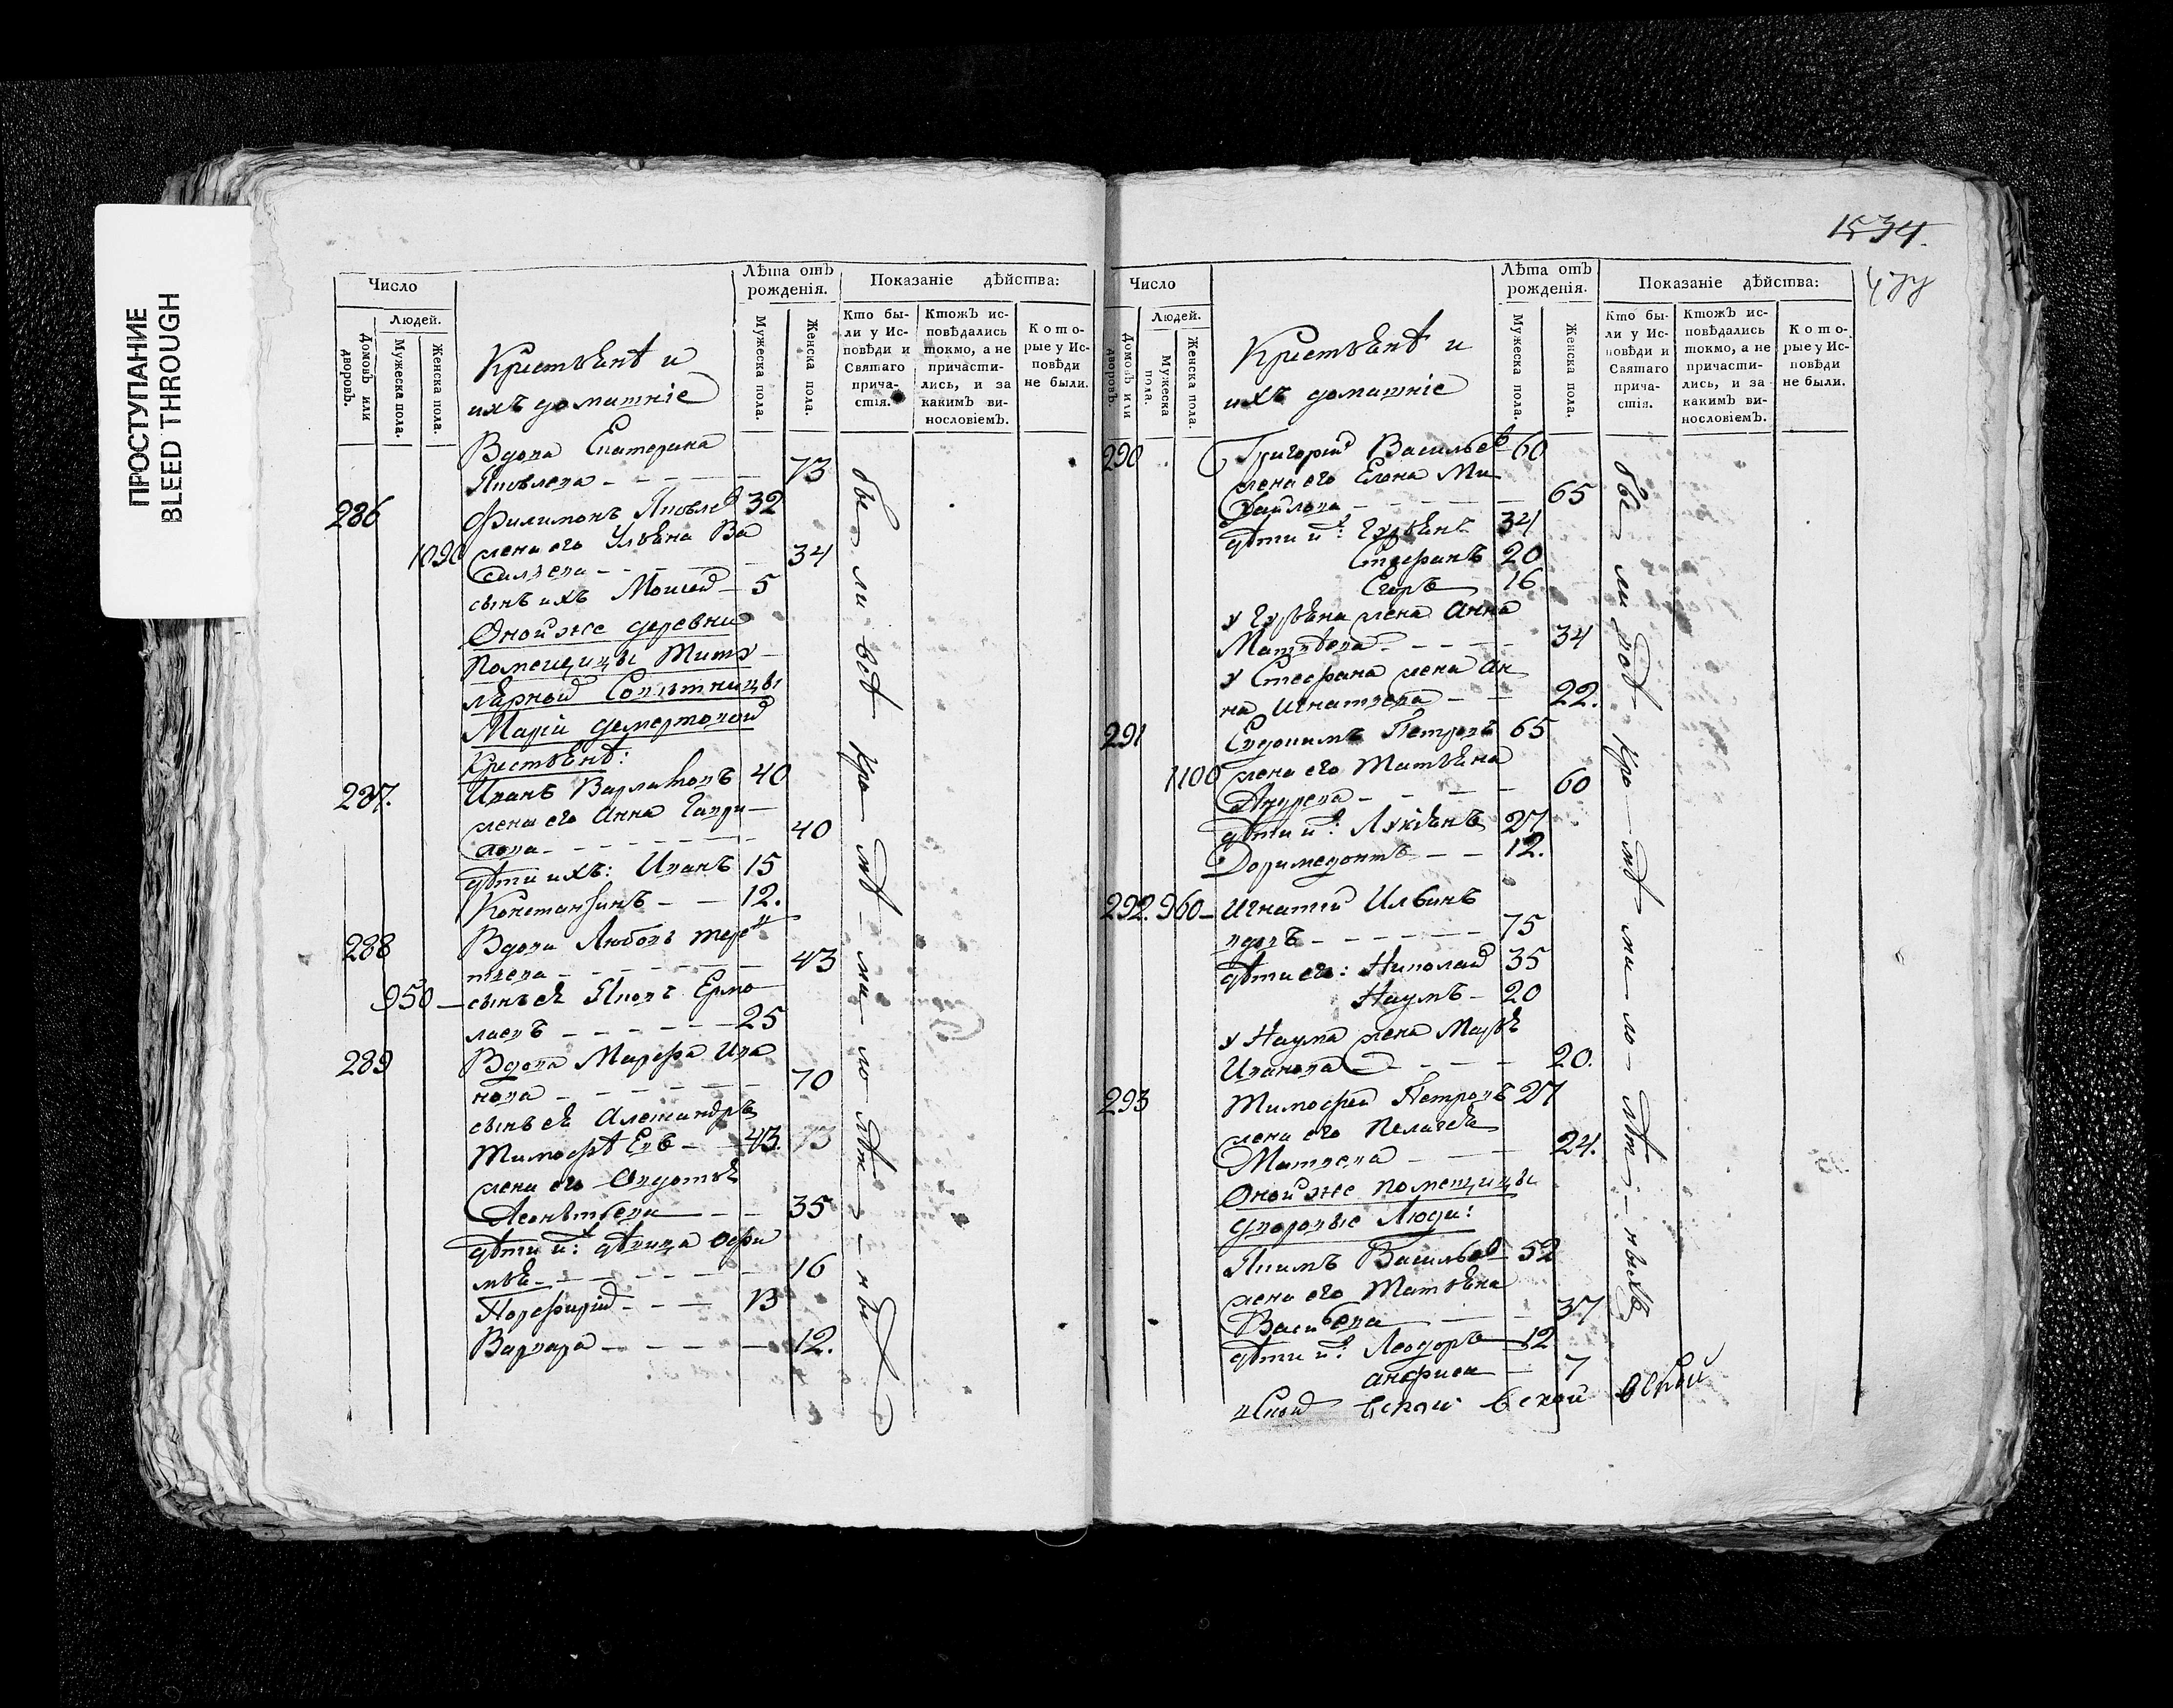 ПРОСТУПАНИЕ
BLEED THROUGH
Число
Людей.
Домовъ или дворовъ.
Мужеска пола.
Женска пола.
Крестьянѣ и
ихъ домашніе
Лѣта отъ рожденія.
Мужеска пола.
Женска пола.
Показаніе дѣйства:
Кто были у Исповѣди и Святаго причастія.
Ктожъ исповѣдались токмо, а не причастились, и за какимъ винословіемъ.
Которые у Исповѣди не были.
Вдова Екатерина
Яковлева - - - 73
286 Филимонъ Яковлев 32
1090 жена его Ульяна Ва
силиева - - - 34
сынъ ихъ Моисей - 5
Оной же деревни
помещицы Титу-
лярной Советницы
Маріи
Крестьянѣ:
287. Иванъ 40
жена его Анна Гаври-
лова - - - 40
дѣти ихъ: Иванъ 15
Константинъ - - 12.
288 Вдова Любовь Тере
нтьева - - - 43
950 - сынъ ея Яковъ Ермо
лаевъ - - - 25
289 Вдова Марфа Ива
нова - - - 70
сынъ ея Александръ
Тимофѣевъ - 43
жена его Авдотья
Леонтьева - - 35
дѣти их: дѣвица Офи
мья - - - 16
Порфирій - - - 13
Варвара - - - 12.
бы- ли всѣ кро- мѣ- ма- ло- лѣт- ных
1534.
477
Число
Людей.
Домовъ или дворовъ.
Мужеска пола.
Женска пола.
Крестьянѣ и
ихъ домашніе
Лѣта отъ рожденія.
Мужеска пола.
Женска пола.
Показаніе дѣйства:
Кто были у Исповѣди и Святаго причастія.
Ктожъ исповѣдались токмо, а не причастились, и за какимъ винословіемъ.
Которые у Исповѣди не были.
290 Григорій Васильев 60
жена его Елена Ми
хайлова - - - 65
дѣти их: Гурьянъ 34
Стефанъ 20
Егоръ 16
у Гурьяна жена Анна
Матвѣева - - - 34
у Стефана жена Ан
на Игнатьева - - 22.
291 Евдокимъ Петровъ 65
1100 жена его Татьяна
Андреева - - - 60
дѣти их: Лукіянъ 27
Доримедонтъ - - 12.
292. 960 - Игнатій Ильинъ
вдовъ - - - 75
дѣти его: Николай 35
Наумъ - 20
у Наума жена Марья
Иванова - - - 20.
293 Тимофей Петровъ 27
жена его Пелагея
Матвеева - - - 24.
Оной же помещицы
дворовые Люди:
Якимъ Васильев 52
жена его Татьяна
Васильева - - - 37
дѣти их: Ѳеодоръ 12
Анфиса - 7
бы- ли всѣ кро- мѣ- ма- ло- лѣт- ныхъ